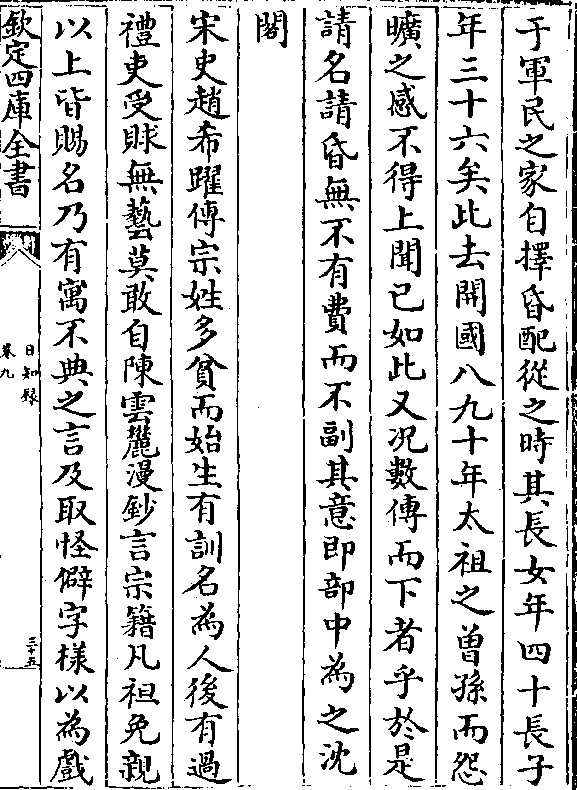 于軍民之家自擇昏配從之時其長女年四十長子
年三十六矣此去開國八九十年太祖之曽孫而怨
曠之感不得上聞已如此又况數傳而下者乎於是
請名請昏無不有費而不副其意即部中為之沈
閣
宋史趙希躍傳宗姓多貧而始生有訓名為人後有過
禮吏受賕無藝莫敢自陳雲麓漫鈔言宗籍凡袒免親
以上皆賜名乃有寓不典之言及取怪僻字様以為戲
欽定四庫全書
日知録
卷九
三十五